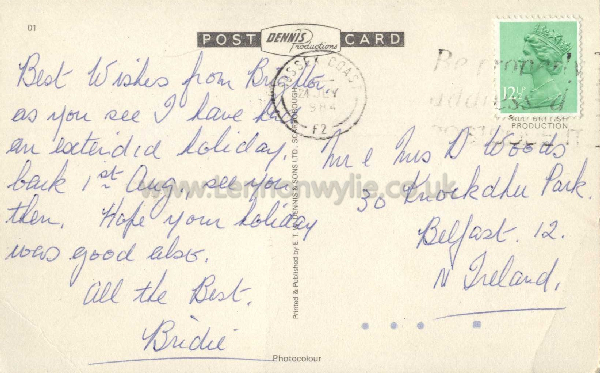 01
POST DENNIS Productions CARD
Best Wishes from
as you see I have
an extended holiday
back 1st Aug see you
then. Hope your holiday
was good also.
All the Best.
Bridie
COAST
1984
F2
12½
BRITISH
PRODUCTION
Mr & Mrs D Woods
30 Knockdhu Park.
Belfast. 12.
N Ireland,
Printed & Published by E. T. W. DENNIS & SONS LTD., SCARBOROUGH
www.Lennonwylie.co.uk
Photocolour